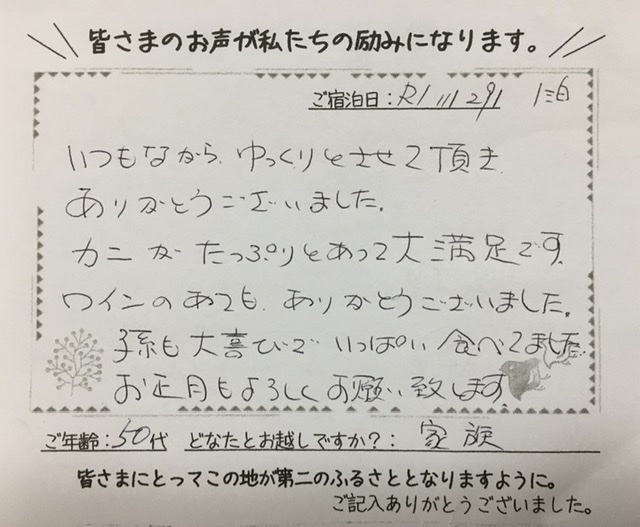 皆さまのお声が私たちの励みになります。
ご宿泊日：R1 11/29 1泊
いつもながら、ゆっくりとさせて頂き
ありがとうございました。
カニがたっぷりとあって大満足です。
ワインのあても、ありがとうございました。
孫も大喜びでいっぱい食べてました。
お正月もよろしくお願い致します。
ご年齢：50代 どなたとお越しですか？：家族
皆さまにとってこの地が第二のふるさととなりますように。
ご記入ありがとうございました。